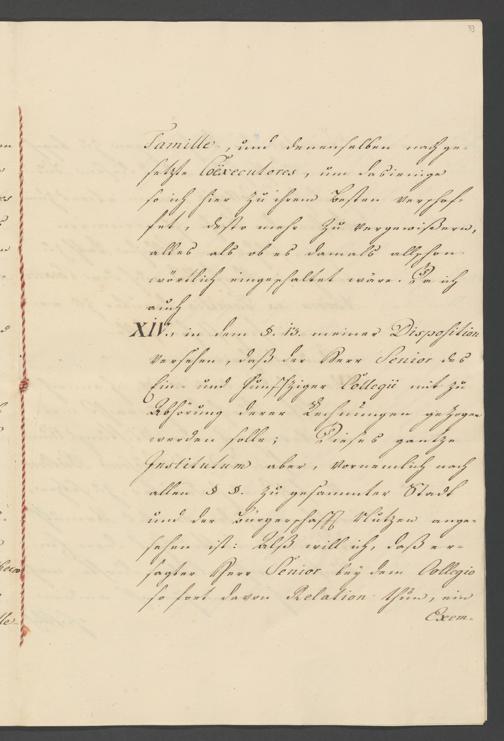 Famille, und denenselben nachge-
setzte Coëxecutores, um dasienige
so ich hier zu ihrem Besten verschaf-
fet, desto mehr zu vergewißern,
alles als ob es damals allschon
wörtlich eingeschaltet wäre. Da ich
auch
XIV., in dem §. 13. meiner Disposition
versehen, daß der Herr Senior des
Ein- und Funfziger Collegii mit zu
Abhörung derer Rechnungen gezogen
werden solle; Dieses gantze
Institutum aber, vornemlich nach
allen § §. zu gesammter Stadt
und der Bürgerschafft Nutzen ange-
sehen ist: Alß will ich, daß er-
sagter Herr Senior bey dem Collegio
so fort davon Relation thun, ein
Exem-